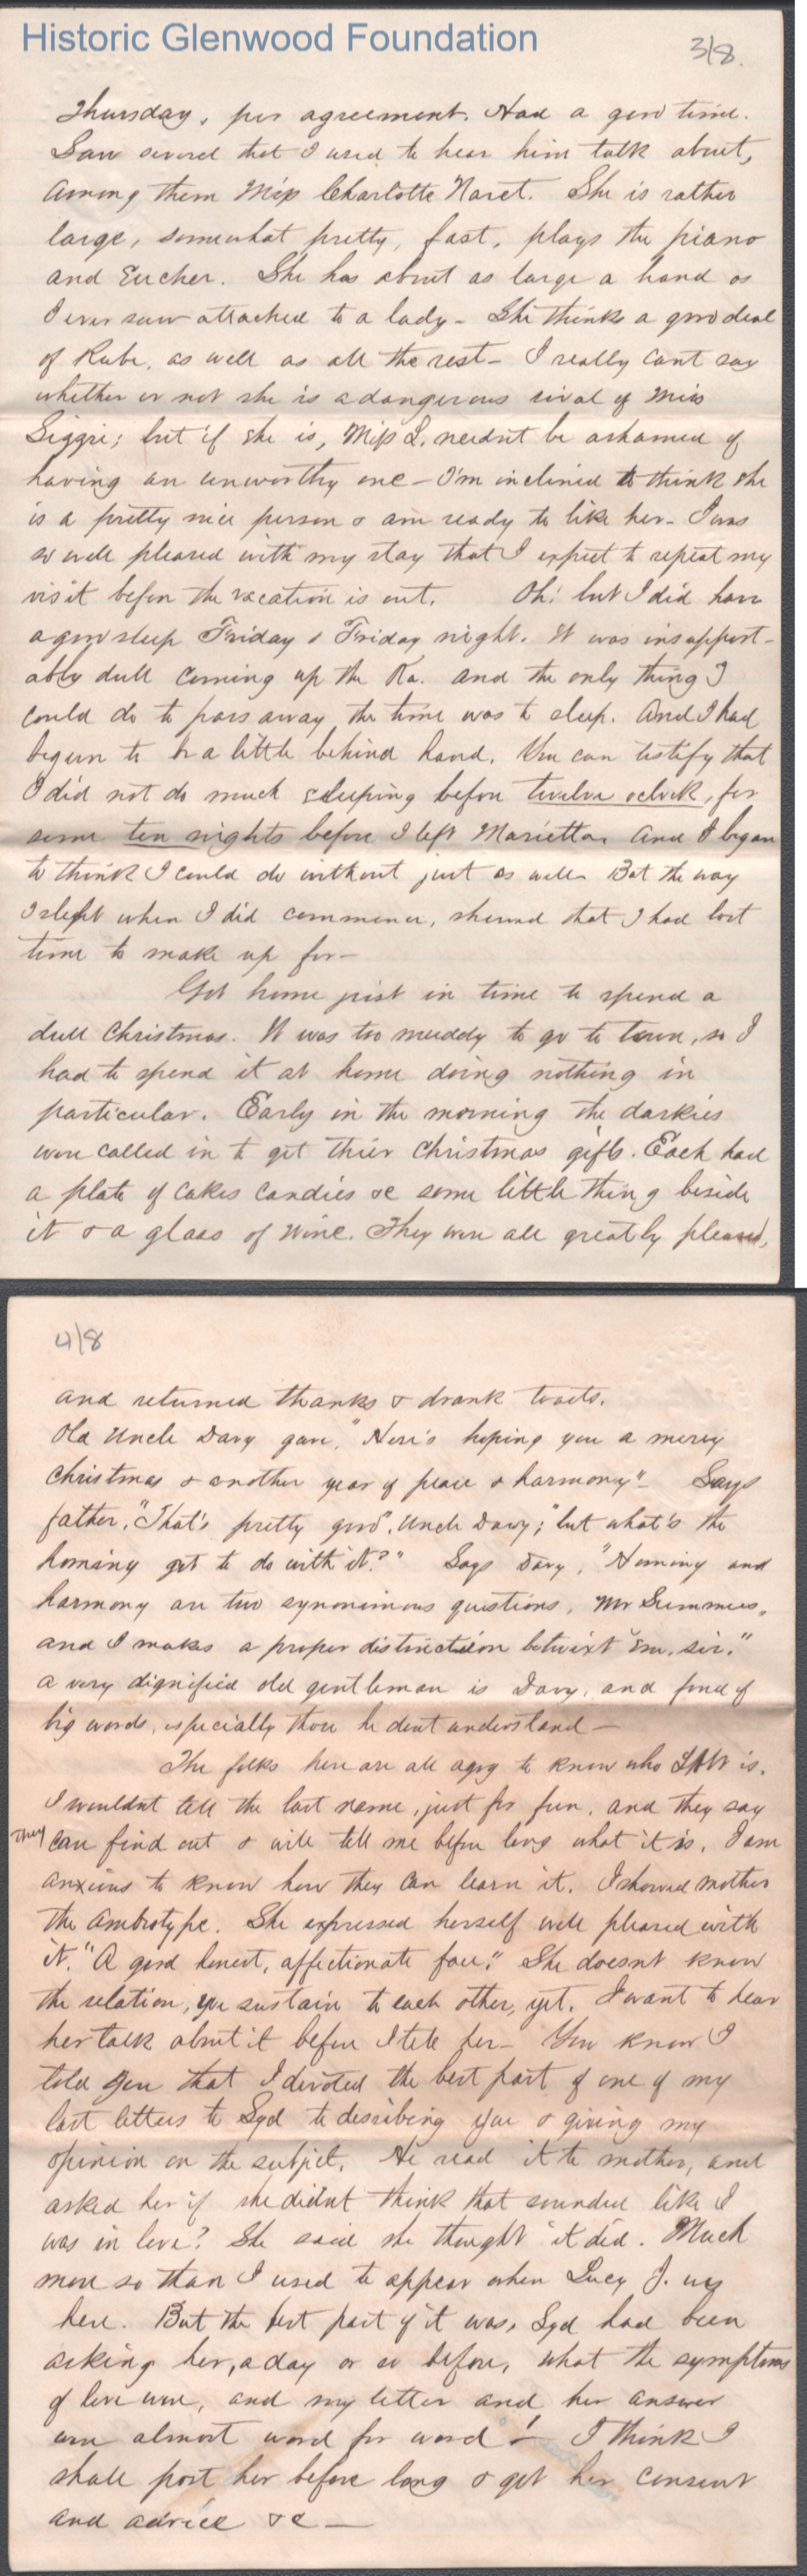 Historic Glenwood Foundation
3/8.
Thursday, per agreement. Had a good time.
Saw several that I used to hear him talk about,
among them Miss Charlotte Naret. She is rather
large, somewhat pretty, fast, plays the piano
and Eucher. She has about as large a hand as
I ever saw attached to a lady - She thinks a good deal
of Rube, as well as all the rest - I really cant say
whether or not she is a dangerous rival of Miss
but if she is, Miss L. needn't be ashamed of
having an unworthy one - I'm inclined to think she
is a pretty nice person & am ready to like her - I was
so well pleased with my stay that I expect to repeat my
visit before the vacation is out. Oh! but I did have
a good sleep Friday & Friday night. It was insupport-
ably dull coming up the Ka. and the only thing I
could do to pass away the time was to sleep. And I had
begun to be a little behind hand. You can testify that
I did not do much sleeping before twelve oclock, for
some ten nights before I left Marietta. And I began
to think I could do without just as well. But the way
I slept when I did commence, showed that I had lost
time to make up for -
Got home just in time to spend a
dull Christmas. It was too muddy to go to town, so I
had to spend it at home doing nothing in
particular. Early in the morning the darkies
were called in to get thier Christmas gifts. Each had
a plate of cakes candies &c some little thing beside
it & a glass of wine. They were all greatly pleased,
4/8
and returned thanks & drank toasts.
Old Uncle Davy gave, "Here's hoping you a merry
Christmas & another year of peace & harmony" - Says
father, "That's pretty good, Uncle Davy; "but what's the
hominy got to do with it?" Says Davy, "Hominy and
harmony are two synonimous questions, Mr Summers,
and I makes a proper distinction betwixt 'em, sir."
a very dignified old gentleman is Davy, and fond of
big words, especially those he dont understand -
The folks here are all agog to know who LAW is.
I wouldnt tell the last name, just for fun, and they say
They can find out & will tell me before long what it is. I am
anxious to know how they can learn it. I showed mother
the ambrotype. She expressed herself well pleased with
it. "A good honest, affectionate face." She doesnt know
the relation, we sustain to each other, yet. I want to hear
her talk about it before I tell her - You know I
told you that I devoted the best part of one of my
last letters to Syd to describing you & giving my
opinion on the subject. He read it to mother, and
asked her if she didn't think that sounded like I
was in love? She said she thought it did. Much
more so than I used to appear when Lucy J. was
here. But the best part of it was, Syd had been
asking her, a day or so before, what the symptoms
of love were, and my letter and her answer
were almost word for word! - I think I
shall post her before long & get her consent
and advice &c -